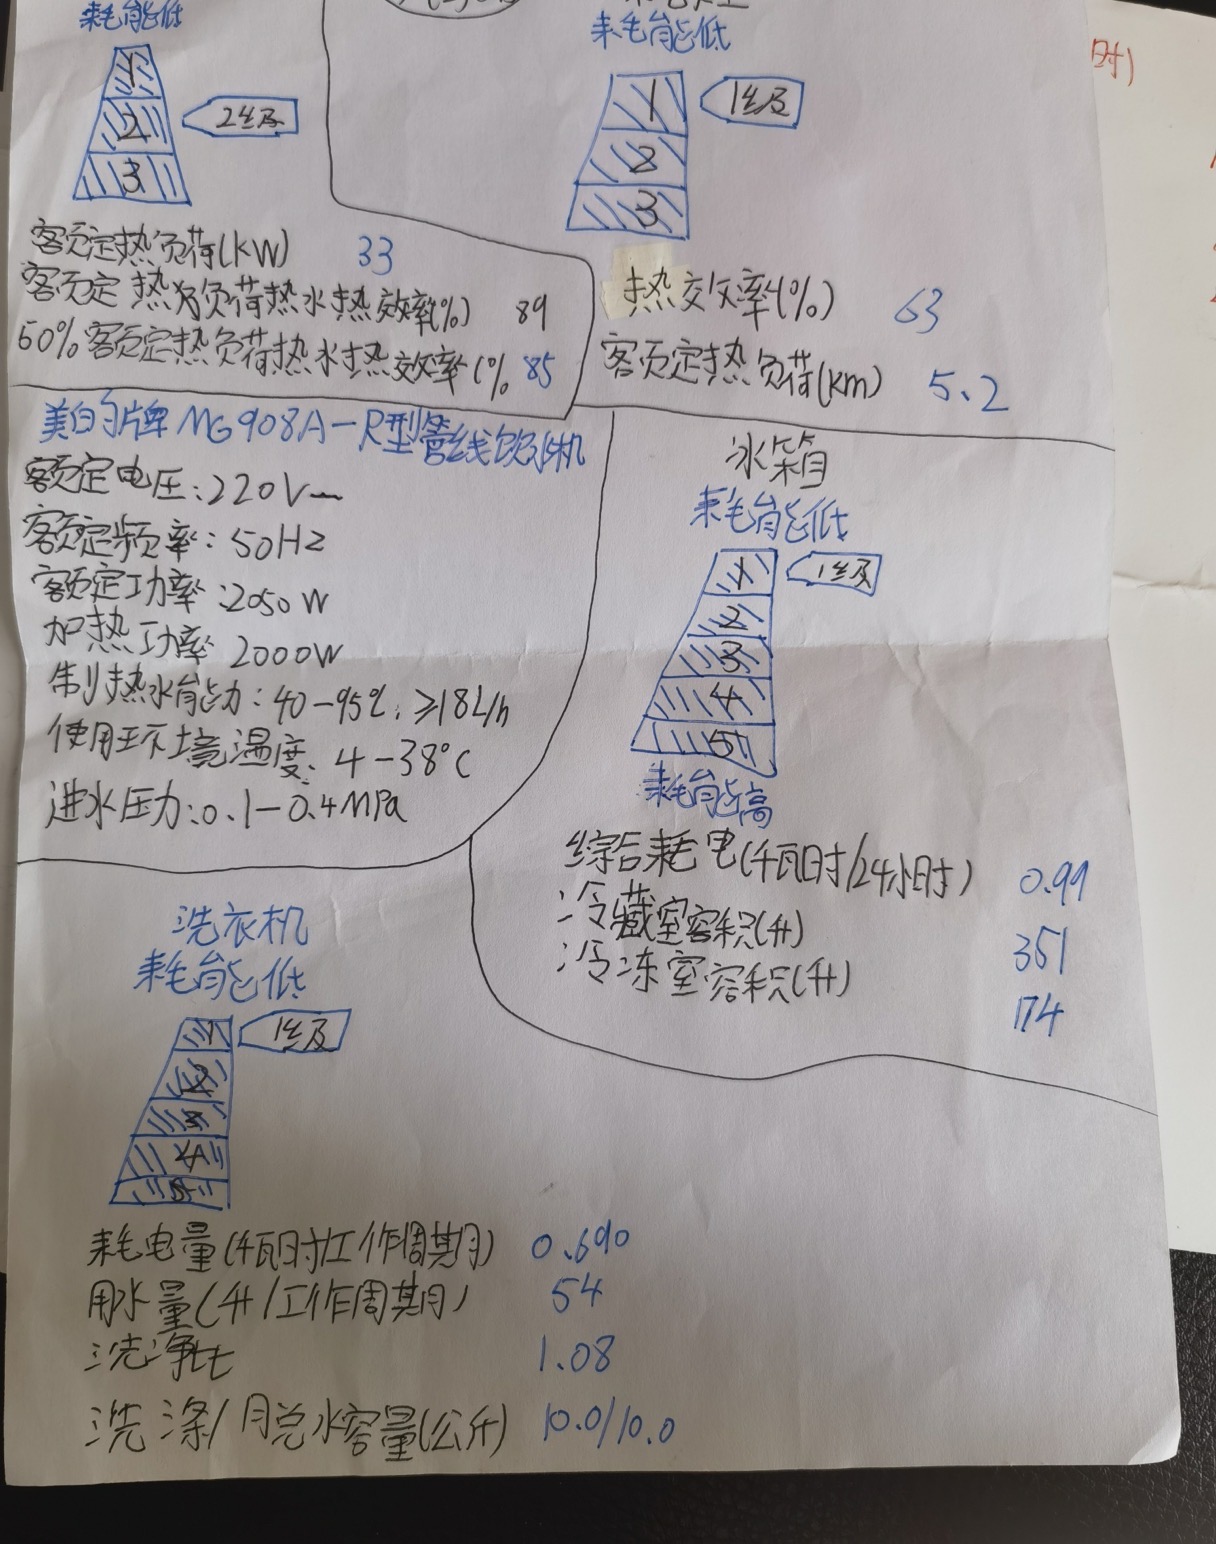 耗能低
1
2
3
2级
额定热负荷(kW) 33
额定热负荷热水热效率(%) 89
50%额定热负荷热水热效率(% 85
耗能低
1
2
3
1级
热效率(%) 63
额定热负荷(km) 5.2
美的牌MG908A-R型管线饮水机
额定电压:220V~
额定频率:50Hz
额定功率:2050W
加热功率 2000W
制热水能力:40-95℃,≥18L/h
使用环境温度、4-38°C
进水压力:0.1-0.4MPa
冰箱
耗能低
1
2
3
4
5
1级
耗能高
综合耗电(千瓦时/24小时) 0.99
冷藏室容积(升) 351
冷冻室容积(升) 174
洗衣机
耗能低
1
2
3
4
5
1级
耗电量(千瓦时/工作周期) 0.690
用水量(升/工作周期) 54
洗净比 1.08
洗涤/脱水容量(公斤) 10.0/10.0
时)